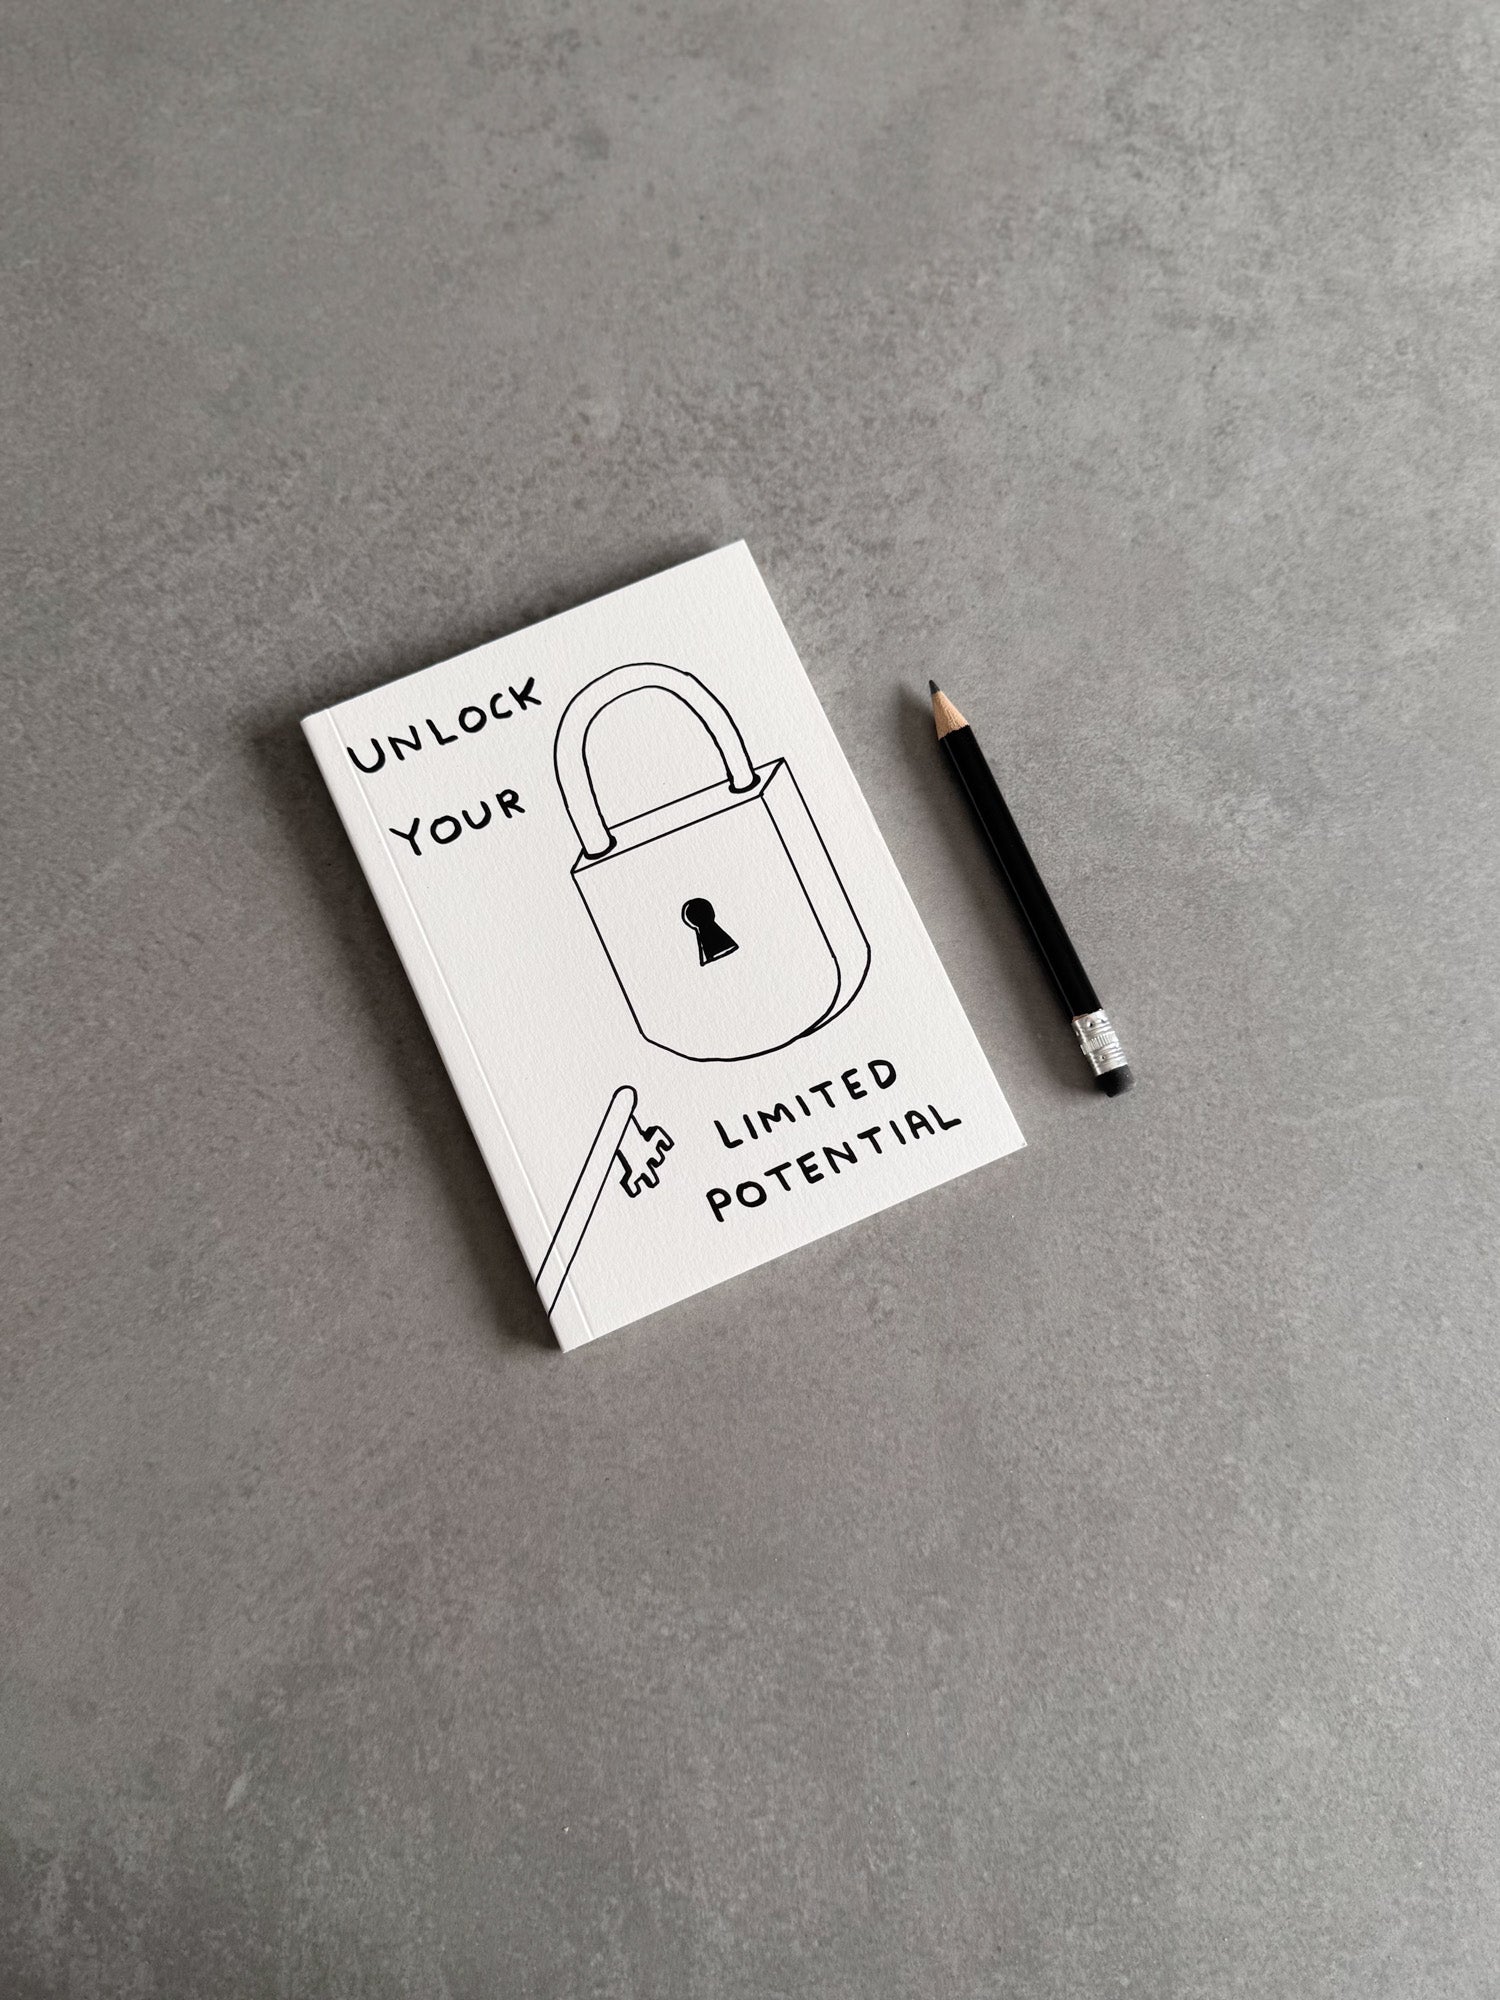 UNLOCK
YOUR
LIMITED
POTENTIAL